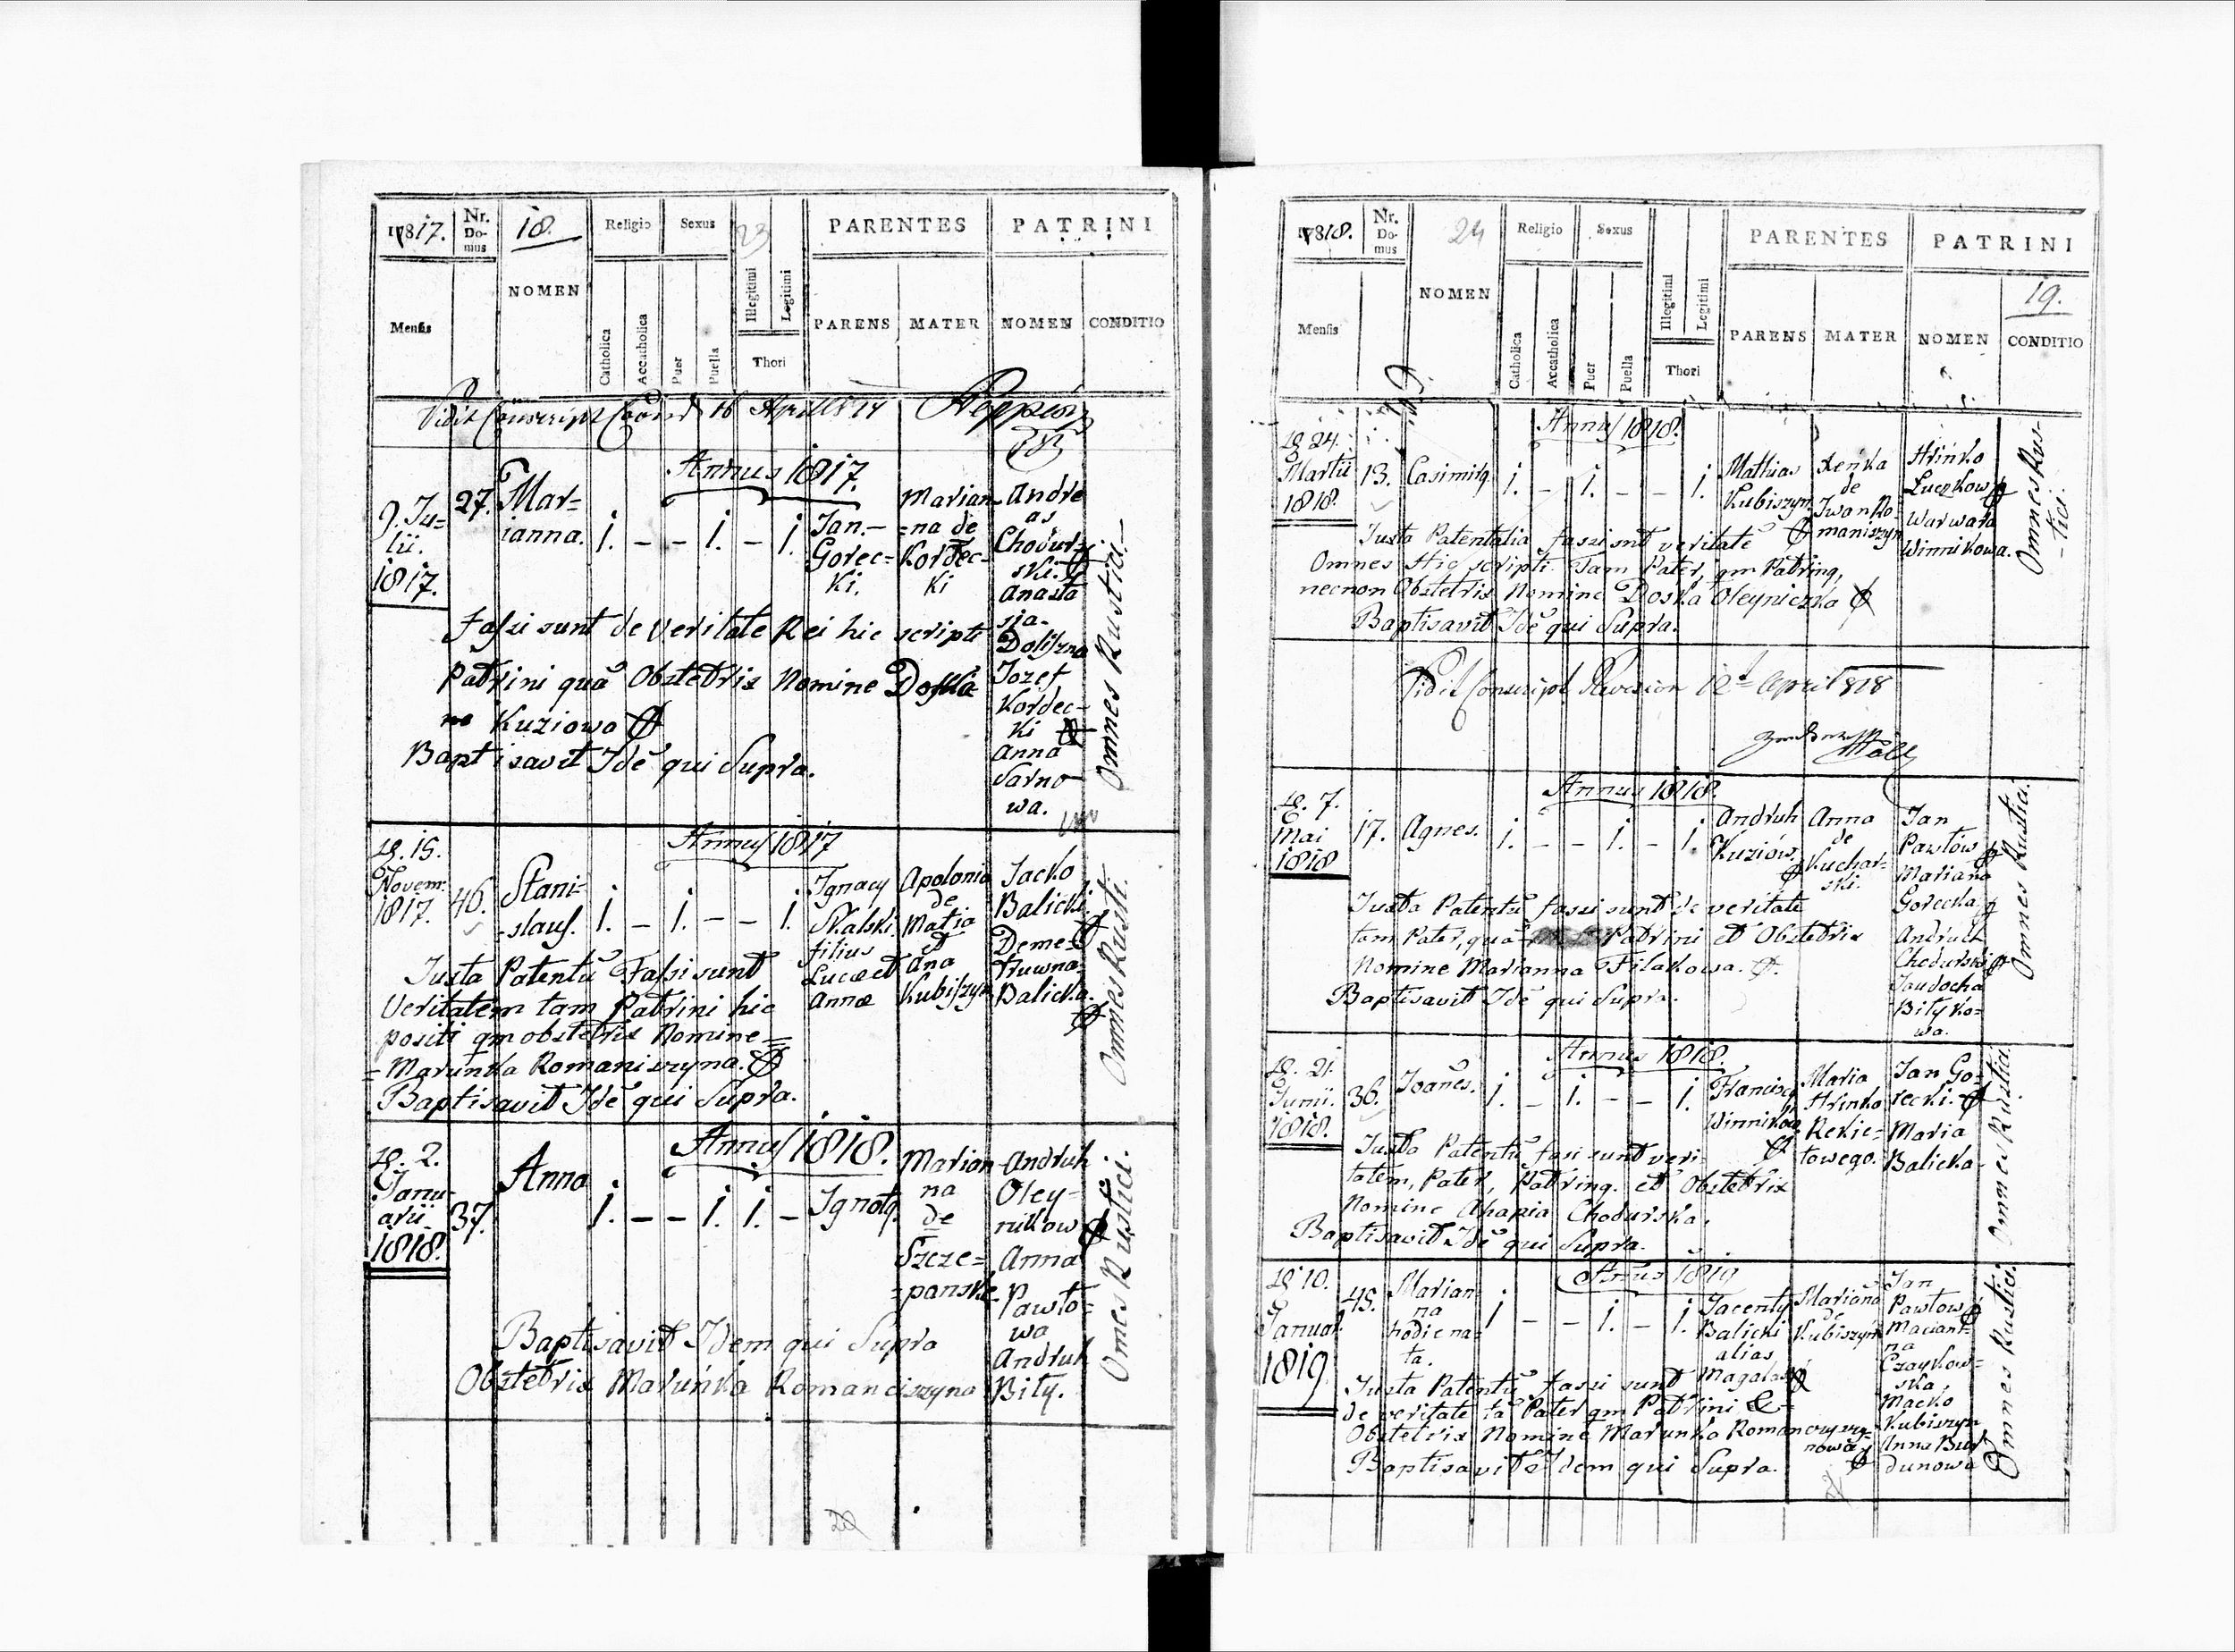 1817.
Nr. Do- mus
18.
23
NOMEN
Religio
Sexus
PARENTES
PATRINI
Mensis
Catholica
Accatholica
Puer
Puella
Illegitimi
Legitimi
Thori
PARENS
MATER
NOMEN
CONDITIO
Vidit Conscript 16 April
Annus 1817.
9. Ju=
lii.
1817.
27.
Mar-
ianna.
1. - - 1. - 1.
Jan.-
Gorec-
ki.
Marian-
=na de
Kordec-
ki
Andre
as
Chodur-
ski.
Anasta
sja-
Doliszna
Jozef
Kordec-
ki
Anna
Sarno
wa.
Omnes Rustici.-
Fassi sunt de veritate Rei hic scripti
Patrini quã Obstetrix Nomine Doska
Kuziowa
Baptisavit Idẽ qui Supra.
Annus 1817
15.
Novem:
1817.
46.
Stani-
-slaus.
1. - 1. - - 1.
Ignacy
Skalski.
filius
Lucæ et
Annæ
Apolonia
de
Matia
et
Ana
Kubiszyn
Jacko
Balicki.
Deme-
truwna
Balicka.
Omnes Rusti.
Juxta Patentũ Fassi sunt
Veritatem tam Patrini hic
positi qm obstetrix Nomine=
=Marunka Romaniszyna.
Baptisavit Idẽ qui Supra.
Annus 1818.
2.
Janu-
arii
1818.
37.
Anna
1. - - 1. 1. -
Ignotq.
Marian
na
de
Szcze=
=panski
Andruh
Oley=
nikow
Anna
Pawło=
wa
Andruh
Biły.
Omes Rustici.
Baptisavit Idem qui Supra
Obstetrix Maruńka Romaniszyna
1818.
Nr. Do- mus
24
NOMEN
Religio
Sexus
PARENTES
PATRINI
19.
Mensis
Catholica
Accatholica
Puer
Puella
Illegitimi
Legitimi
Thori
PARENS
MATER
NOMEN
CONDITIO
Annus 1818.
24.
Martii
1818.
13.
Casimirq.
1. - 1. - - 1.
Mathias
Kubiszyn
Xeńka
de
Iwan Ro-
maniszyn
Hrinko
Luczkow
Warwara
Winnikowa.
Omnes Rus-
-tici.
Juxta Patentalia fassi snt veritatẽ
Omnes Hic scripti Tam Pater, qm Patrinq,
necnon Obstetrix Nomine Doska Oleyniczka
Baptisavit Idẽ qui Supra.
Vidit Conscript Revision 12t April 818
Annus 1818.
7.
Mai
1818
17.
Agnes.
1. - - 1. - 1.
Andruh
Kuziów.
Anna
de
Kuchar-
ski.
Jan
Pawłow
Mariana
Gorecka
Andruch
Chodurski
Jaudocha
Biłyko=
wa.
Omnes Rustici.
Juxta Patentũ fassi sunt de veritate
tam Pater, quã Patrini et Obstetrix
Nomine Marianna Filakowa.
Baptisavit Idẽ qui Supra.
Annus 1818.
21.
Junii.
1818.
36.
Joañes.
1. - 1. - - 1.
Franciscq
Winnikow.
Maria
Hrinko
Rekie=
towego.
Jan Go-
recki.
Maria
Balicka.
Omnes Rustici.
Juxta Patentũ fassi sunt veri-
tatem, Pater, Patrinq. et Obstetrix
Nomine Ahapia Chodurska.
Baptisavit Idẽ qui Supra.
Annus 1819
10.
Januar.
1819
45.
Marian
na
hodie na=
ta.
1 - - 1. - 1.
Jacenty
Balicki
alias
Magalas
Mariana
de
Kubiszyn
Jan
Pawłow
Mariań-
na
Czaykow=
ska
Macko
Kubiszyn
Anna Bur
dunowa
Omnes Rustici.
Juxta Patentũ fassi sunt
de veritate tã Pater qm Patrini &
Obstetrix Nomine Marunka Romanczyszy=
nowa
Baptisavit Idem qui Supra.